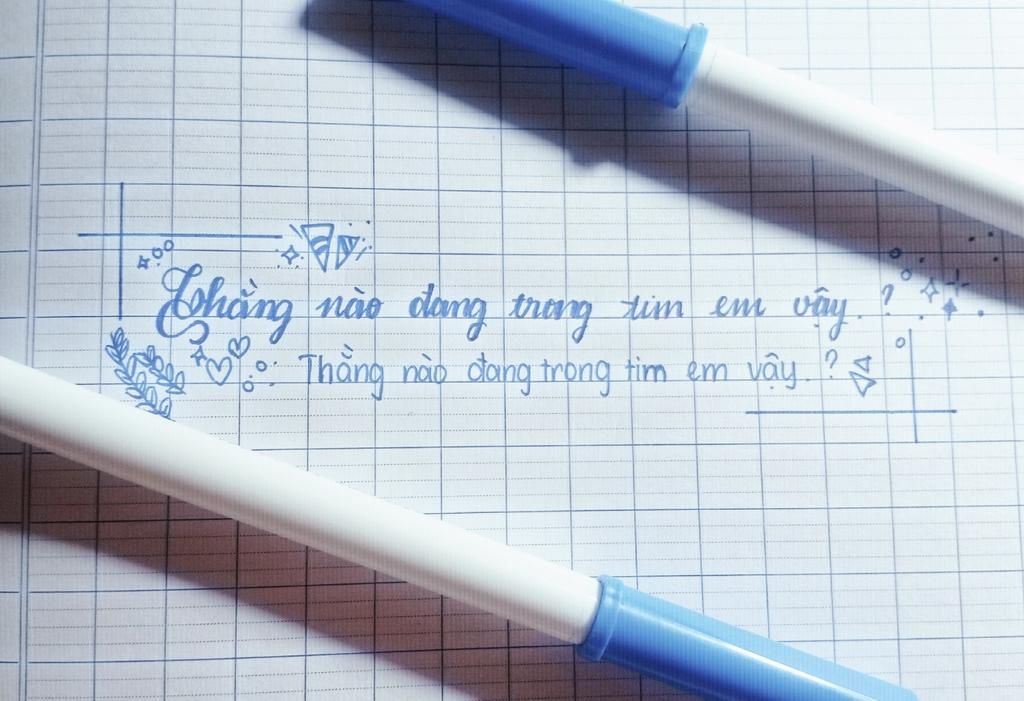 Thằng nào đang trong tim em vậy. ?
Thằng nào đang trong tim em vậy. ?